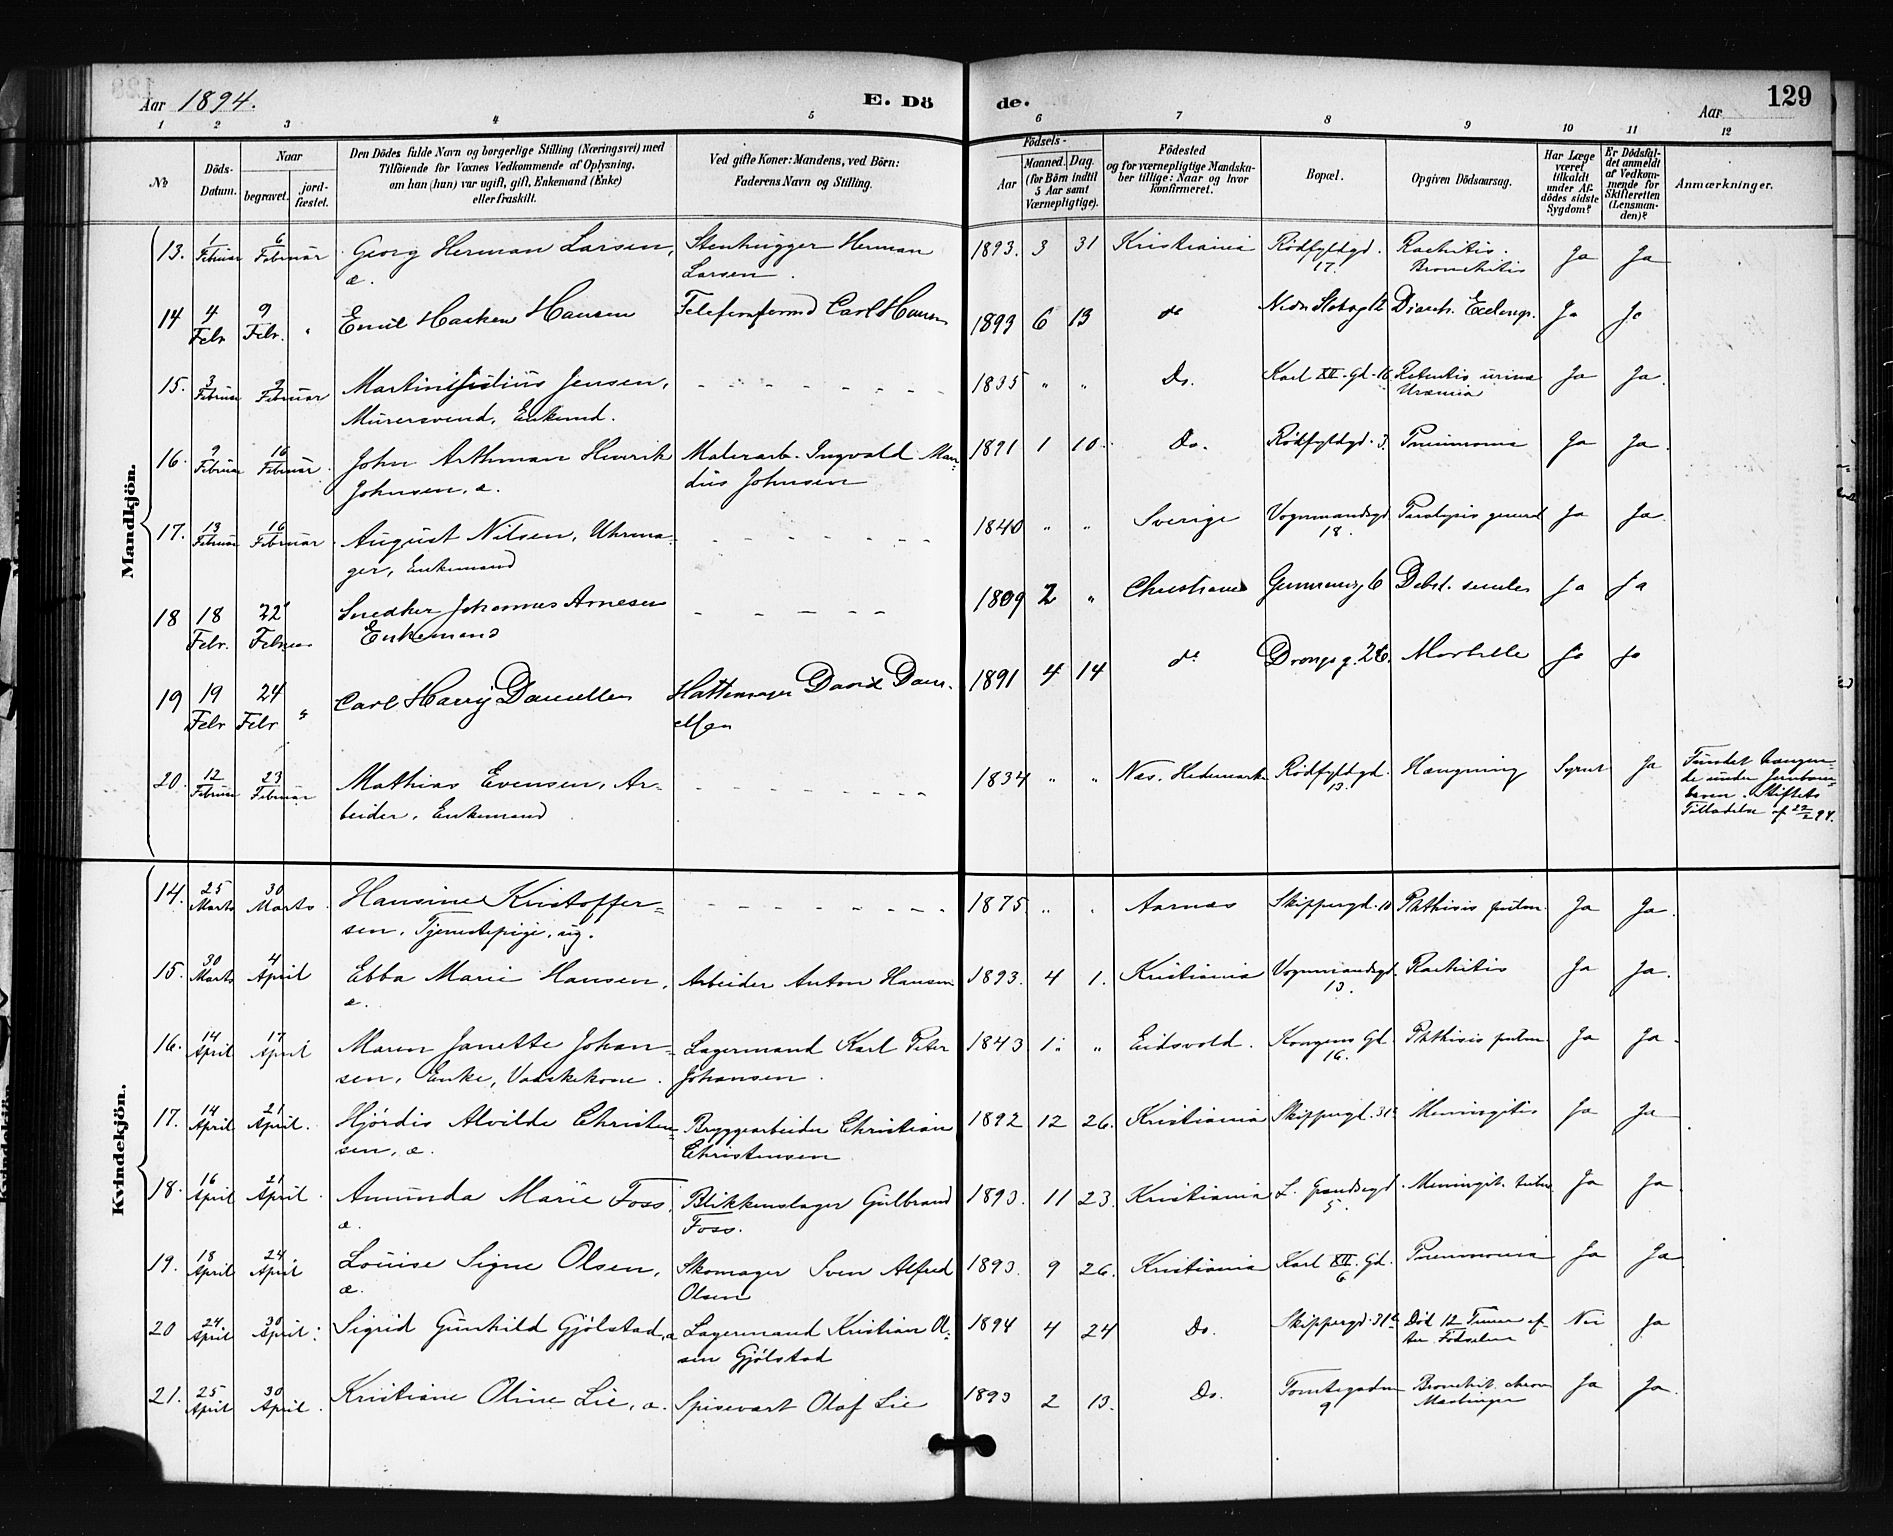 Aar 1894. E. Dö de. Aar 129
1 2 3 4 5 6 7 8 9 10 11 12
No Döds-Datum. Naar begravet. jord-fæstet. Den Dödes fulde Navn og borgerlige Stilling (Næringsvei) med Tilföiende for Voxnes Vedkommende af Oplysning, om han (hun) var ugift, gift, Enkemand (Enke) eller fraskilt. Ved gifte Koner: Mandens, ved Börn: Faderens Navn og Stilling. Födsels- Aar Maaned. Dag. (for Börn indtil 5 Aar samt Værnepligtige). Födested og for værnepligtige Mandskaber tillige: Naar og hvor konfirmeret. Bopæl. Opgiven Dödsaarsag. Har Læge været tilkaldt under Afdödes sidste Sygdom? Er Dödsfaldet anmeldt af Vedkommende for Skifteretten (Lensmanden)? Anmærkninger.
Mandkjön.
13. 1 Februar 6 Februar Georg Herman Larsen, Stenhugger Herman 1893. 3 31 Kristiania Rödfyldgd. 17. Rachitis. Bronchitis Ja Ja
æ. Larsen.
14 4 Febr 9 Febr. " Emil Haaken Hansen Carl Hansen 1893 6 13 do 12 Ja Ja
15. 3 Februar 9 Februar Martin Julius Jensen, 1835 " " Do. Karl XII. Gd. 16 Uræmia Ja Ja.
Murersvend, Enkemd.
16. 9 Februar 16 Februar John Arthman Henrik Malerarb. Ingvald Man- 1891 1 10. Do. Rödfyldgd. 3. Pneumonia Ja Ja.
Johnsen, æ. dius Johnsen
17. 13 Februar 16 Februar August Nilsen, Uhrma- 1840 " " Sverige Vognmandsgd. 18. Paralysis general Ja Ja.
ger, Enkemand
18 18 Febr. 22 Februar Snedker Johannes Arnesen 1809 2 " Christiania 6 Debil. senilis Ja Ja
Enkemand
19 19 Febr 24 Febr " Carl Harry Danielsen Hattemager David Dani- 1891 4 14 do Drongsg. 26. Morbille Ja Ja
elsen
20. 12 Februar 23 Februar Mathias Evensen, Ar- 1834 " " Næs. Hedemarken Rödfyldgd. 13. Hængning Synet Ja Fundet hængen-
beider, Enkemand de under Jernban-
Stiftets
Tilladelse af 22/2 94.
Kvindekjön.
14. 25 Marts 30 Marts. Hansine Kristoffer- 1875. " " Aarnæs Skippergd. 10 Phthisis pulm. Ja Ja.
sen. Tjenestepige, ug.
15. 30 Marts 4 April Ebba Marie Hansen, Arbeider Anton Hansen 1893. 4 1. Kristiania Vognmandsgd. 13. Rachitis Ja Ja.
æ.
16. 14 April 17 April Maren Janette Johan- Lagermand Karl Peter 1843 1. " Eidsvold. Kongens Gd. 16. Phthisis pulm. Ja Ja.
sen, Enke, Vaskekone. Johansen.
17. 14 April 21 April. Hjördis Alvilde Christen- Bryggearbeider Christian 1892 12 26. Kristiania Skippergd. 31 Meningitis Ja Ja
sen, æ. Christensen
18. 16 April 21 April. Amunda Marie Foss, Blikkenslager Gulbrand 1893. 11 23. Kristiania L. Grændsegd. 5. Meningit. tuber Ja Ja.
æ. Foss.
19. 18 April 24 April Louise Signe Olsen, Skomager Sven Alfred 1893. 9 26. Kristiania Karl XII. Gd. 6 Pneumonia Ja Ja
æ. Olsen
20 24 April 30 April. Sigrid Gunhild Gjölstad, æ Lagermand Kristian Ol- 1894 4 24 Do. Skippergd. 31 Död 12 Timer ef- Nei Ja
sen Gjölstad ter Födselen
21. 25 April 30 April. Kristiane Oline Lie, æ. Spisevært Olaf Lie 1893 2 13. Do. Tomtegaden 9 Bronchit. Ja Ja.